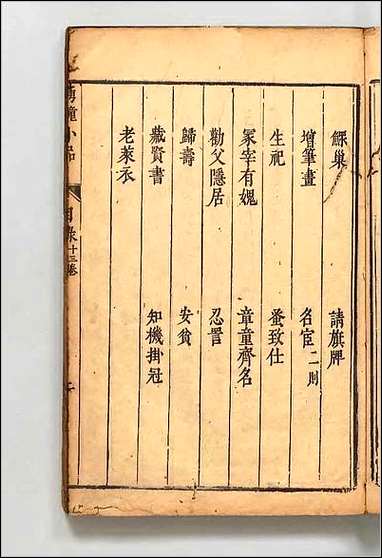 鰥巢 請旗牌
增筆畫 名宦二則
生祀 蚤致仕
冢宰有媿 章童齊名
勸父隱居 忍詈
歸壽 安貧
藏賢書 知機掛冠
老萊衣
小品 目錄 十三卷 二